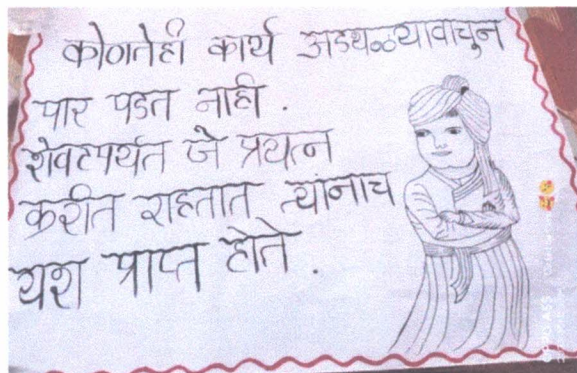 कोणतेही कार्य अडथळ्यावाचुन
पार पडत नाही .
शेवटपर्यंत जे प्रयत्न
करीत राहतात त्यांनाच
यश प्राप्त होते .